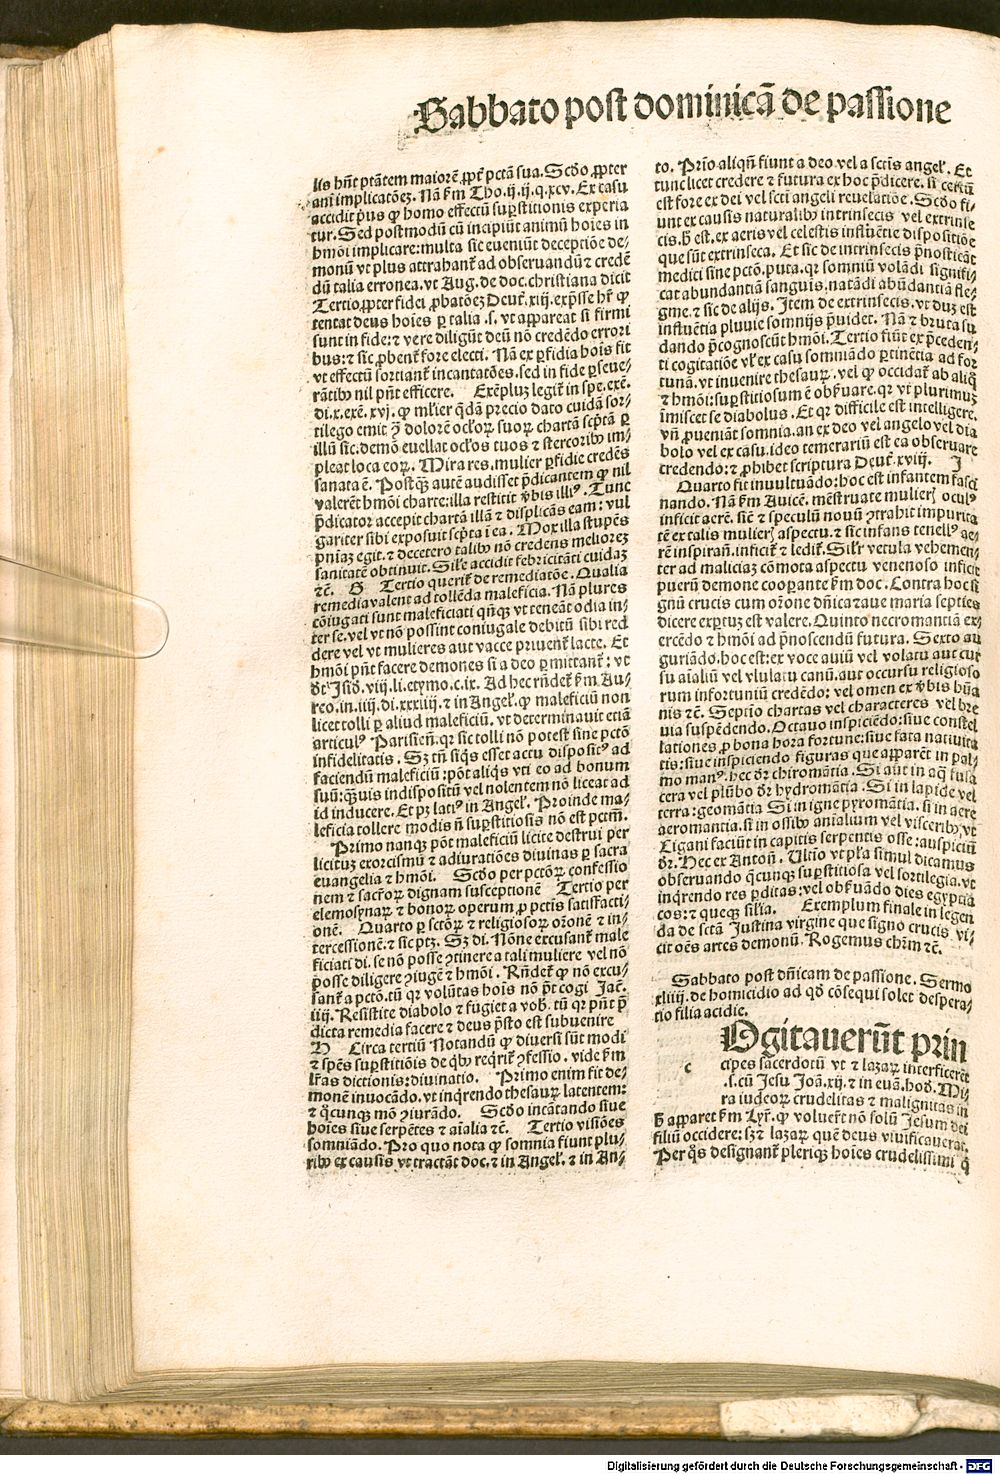 Sabbato post dominicā de passione
lis hñt ptātem maiorē ꝓpt̄ pctā sua. Scd̄o ꝓpter
ani implicatōez. Nā ẜm Tho. ij. ij. q. xcv. Ex casu
accidit pͥus ꝙ homo effectū suꝑstitionis experia
tur. Sed postmodū cū incipiūt animū hoies in
hmōi implicare: multa sic eueniūt deceptiōe de⸗
monū vt plus attrahant̄ ad obseruandū ⁊ credē
dū talia erronea. vt Aug. de doc. christiana dicit
Tertio ꝓpter fidei ꝓbatōez Deut̄. xiij. exp̄sse hr̄ ꝙ
tentat deus hoies ꝑ talia .s. vt appareat si firmi
sunt in fide: ⁊ vere diligūt deū nō credēdo errori
bus: ⁊ sic ꝓbent̄ fore electi. Nā ex ꝑfidia hois fit
vt effectū sortiant̄ incantatōes. sed in fide ꝑseue⸗
rātibꝰ nil pn̄t efficere. Exēpluz legit̄ in spe. exē.
di. x. exē. xvj. ꝙ ml̓ier q̄dā precio dato cuidā sor⸗
tilego emit ꝯ dolorē ocl̓oꝝ suoꝝ chartā scp̄ta ꝑ
illū sic. demō euellat ocl̓os tuos ⁊ stercoribꝰ im⸗
pleat loca eoꝝ. Mira res. mulier ꝑfidie credēs
sanata ē. Postq̄ꝫ autē audisset p̄dicantem ꝙ nil
valerēt hmōi charte: illa restitit v̓bis illiꝰ. Tunc
p̄dicator accepit chartā illā ⁊ displicās eam: vul
gariter sibi exposuit scp̄ta ī ea. Mox illa stupēs
pn̄iaꝫ egit. ⁊ decetero talibꝰ nō credens meliorez
sanitatē obtinuit. Sil̓e accidit febricitāti cuidaꝫ
⁊c̄. G Tertio querit̄ de remediatōe. Qualia
remedia valent ad tollēda maleficia. Nā plures
cōiugati sunt maleficiati qn̄qꝫ vt teneāt odia in⸗
ter se. vel vt nō possint coniugale debitū sibi red
dere vel vt mulieres aut vacce priuent̄ lacte. Et
hmōi pn̄t facere demones si a deo ꝑmittant̄: vt
dt̄ Isid̄. viij. li. etymo. c. ix. Ad hec rn̄det̄ ẜm Au⸗
reo. in. iiij. di. xxxiiij. ⁊ in Angel̓. ꝙ maleficiū non
licet tolli ꝑ aliud maleficiū. vt determinauit etiā
articulꝰ Parisien̄. qr sic tolli nō potest sine pctō
infidelitatis. Sꝫ tn̄ siq̄s esset actu dispositꝰ ad
faciendū maleficiū: pōt aliq̄s vti eo ad bonum
suū: q̄ꝫuis indispositū vel nolentem nō liceat ad
id inducere. Et pꝫ latiꝰ in Angel̓. Proinde ma⸗
leficia tollere modis ñ suꝑstitiosis nō est pctm̄.
Primo nanqꝫ pōt maleficiū licite destrui per
licituꝫ exorcismū ⁊ adiuratiōes diuinas ꝑ sacra
euangelia ⁊ hmōi. Scd̄o per pctōꝝ confessio
nem ⁊ sacr̄oꝝ dignam susceptionē Tertio per
elemosynaꝝ ⁊ bonoꝝ operum ꝓ pctis satisfacti⸗
onē. Quarto ꝑ sctōꝝ ⁊ religiosoꝝ or̄onē ⁊ in⸗
tercessionē. ⁊ sic ptꝫ. Sꝫ di. Nōne excusant̄ male
ficiati di. se nō posse ꝯtinere a tali muliere vel nō
posse diligere ꝯiugē ⁊ hmōi. Rn̄det̄ ꝙ nō excu⸗
sant̄ a pctō. tū qr volūtas hois nō pōt cogi Jac̄.
iiij. Resistite diabolo ⁊ fugiet a vob̄. tū qr pn̄t p̄
dicta remedia facere ⁊ deus p̄sto est subuenire
H Circa tertiū Notandū ꝙ diuersi sūt modi
⁊ spēs suꝑstitiōis de qbꝰ reqrit̄ ꝯfessio. vide ẜm
lr̄as dictionis: diuinatio. Primo enim fit de⸗
monē inuocādo. vt inqrendo thesauꝝ latentem:
⁊ q̄cunqꝫ mō ꝯiurādo. Scd̄o incātando siue
hoies siue serpētes ⁊ aialia ⁊c̄. Tertio visiōes
somniādo. Pro quo nota ꝙ somnia fiunt plu⸗
ribꝰ ex causis vt tractāt doc. ⁊ in Angel̓. ⁊ in An⸗
to. Prīo aliqn̄ fiunt a deo vel a sctis angel̓. Et
tunc licet credere ⁊ futura ex hoc p̄dicere. si certū
est fore ex dei vel scti angeli reuelatiōe. Scd̄o fi⸗
unt ex causis naturalibꝰ intrinsecis vel extrinse
cis. h̄ est. ex aeris vel celestis influētie dispositiōe
que sūt extrinseca. Et sic de intrinsecis p̄nosticāt
medici sine pctō. puta. qr somniū volādi signifi⸗
cat abundantiā sanguis. natādi abūdantiā fle⸗
gme. ⁊ sic de alijs. Item de extrinsecis. vt dum est
influētia pluuie somnijs p̄uidet. Nā ⁊ bruta su
dando p̄cognoscūt hmōi. Tertio fiūt ex p̄ceden⸗
ti cogitatiōe vl̓ ex casu somniādo ꝑtinētia ad for
tunā. vt inuenire thesauꝝ. vel ꝙ occidat̄ ab aliq̄
⁊ hmōi: suꝑstitiosum ē obẜuare. qr vt plurimuꝫ
īmiscet se diabolus. Et qr difficile est intelligere.
vn̄ ꝓueniāt somnia. an ex deo vel angelo vel dia
bolo vel ex casu. ideo temerariū est ea obseruare
credendo: ⁊ ꝓhibet scriptura Deut̄. xviij. I
Quarto fit inuultuādo: hoc est infantem fasci
nando. Nā ẜm Auicē. mēstruate mulierꝫ oculꝰ
inficit aerē. sic̄ ⁊ speculū nouū ꝯtrahit impurita
tē ex talis mulierꝫ aspectu. ⁊ sic infans tenellꝰ ae⸗
rē inspirañ. inficit̄ ⁊ ledit̄. Sil̓r vetula vehemen⸗
ter ad maliciaꝫ cōmota aspectu venenoso inficit
puerū demone cooꝑante ẜm doc. Contra hoc si
gnū crucis cum or̄one dn̄ica ⁊ aue maria septies
dicere exꝑtuꝫ est valere. Quinto necromantiā ex⸗
ercēdo ⁊ hmōi ad p̄noscendū futura. Sexto au
guriādo. hoc est: ex voce auiū vel volatu aut cur
su aīaliū vel vlulatu canū. aut occursu religioso
rum infortuniū credēdo: vel omen ex v̓bis hūa
nis ⁊c̄. Septīo chartas vel characteres vel bre
uia suspēdendo. Octauo inspiciēdo: siue constel
lationes ꝓ bona hora fortune: siue fata natiuita
tis: siue inspiciendo figuras que apparēt in pal⸗
mo manꝰ. hec dr̄ chiromātia. Si aūt in aq̄ fusa
cera vel plūbo dr̄ hydromātia. Si in lapide vel
terra: geomātia Si in igne pyromātia. si in aere
aeromantia. si in ossibꝰ anialium vel visceribꝰ. vt
Cigani faciūt in capitis serpentis osse: auspiciū
dr̄. Hec ex Anton̄. Ultīo vt pl̓a simul dicamus
obseruando q̄cunqꝫ suꝑstitiosa vel sortilegia. vt
inqrendo res ꝑditas: vel obẜuādo dies egyptia
cos: ⁊ queqꝫ sil̓ia. Exemplum finale in legen
da de sctā Justina virgine que signo crucis vi⸗
cit oēs artes demonū. Rogemus chm̄ ⁊c̄.
Sabbato post dn̄icam de passione. Sermo
xliiij. de homicidio ad qd̄ cōsequi solet despera⸗
tio filia acidie.
Ogitauerūt prin
c cipes sacerdotū vt ⁊ lazaꝝ interficerēt
.s. cū Jesu Joā. xij. ⁊ in euā. hod̄. Mi⸗
ra iudeoꝝ crudelitas ⁊ malignitas in
h̄ apparet ẜm Lyr̄. ꝙ voluer̄t nō solū Jesum dei
filiū occidere: sꝫ ⁊ lazaꝝ quē deus viuificauerat.
Per q̄s designant̄ pleriqꝫ hoies crudelissimi q̄
Digitalisierung gefördert durch die Deutsche Forschungsgemeinschaft - DFG